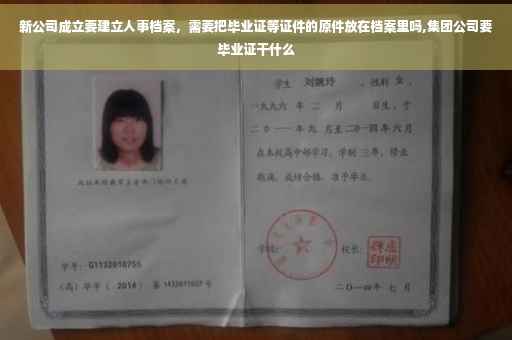 新公司成立要建立人事档案，需要把毕业证等证件的原件放在档案里吗,集团公司要
毕业证干什么
学生 刘婉玲 ，性别 女 ，
一九九六 年 二 月 日生，于
二〇一一 年 九 月至二〇一四年 六 月
在本校高中部学习，学制 三 年，修业
期满，成绩合格，准予毕业。
学校： 校长：
学号：G1132010755
（高）毕字（ 2014 ）第 1432011007 号
二〇一四年 七 月